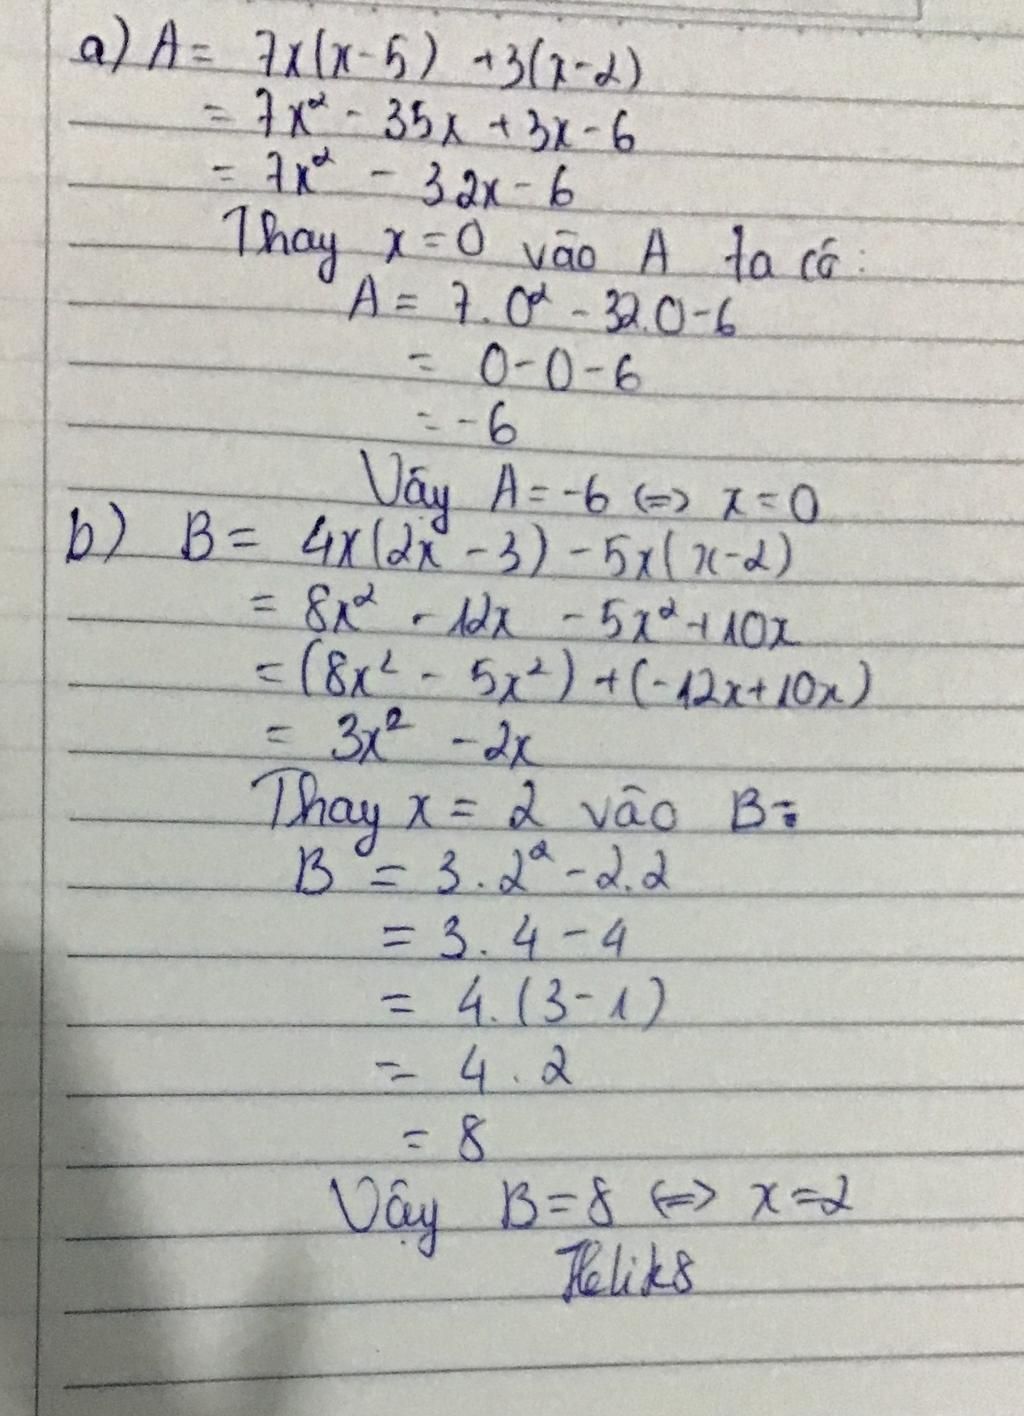 a) A = 7x(x-5) +3(x-2)
= 7x² - 35x + 3x - 6
= 7x² - 32x - 6
Thay x = 0 vào A ta có:
A = 7.0² - 32.0-6
= 0-0-6
= -6
Vậy A = -6 <=> x = 0
b) B = 4x(2x - 3) - 5x(x-2)
= 8x² - 12x - 5x² + 10x
= (8x² - 5x²) + (-12x+10x)
= 3x² - 2x
Thay x = 2 vào B:
B = 3.2² - 2.2
= 3.4 - 4
= 4.(3-1)
= 4.2
= 8
Vậy B = 8 <=> x = 2